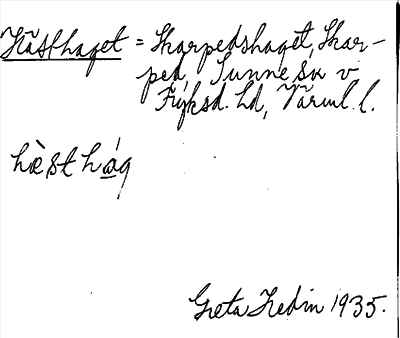 Hästhaget = Skarpedshaget, Skar-
ped, Sunne sn v
Fryksd. hd, Värml. l.
hὲst hág
Greta Hedin 1935.